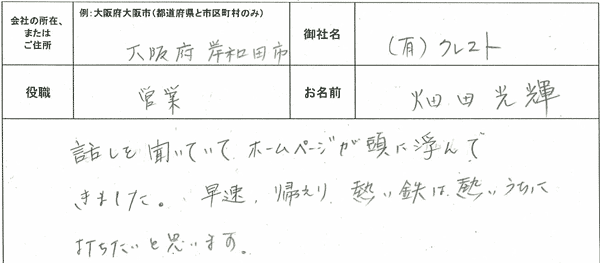 会社の所在、
または
ご住所
例：大阪府大阪市（都道府県と市区町村のみ）
大阪府岸和田市
御社名
（有）クレスト
役職
営業
お名前
畑田光輝
話しを聞いていてホームページが頭に浮んで
きました。早速、帰えり、熱い鉄は熱いうちに
打ちたいと思います。